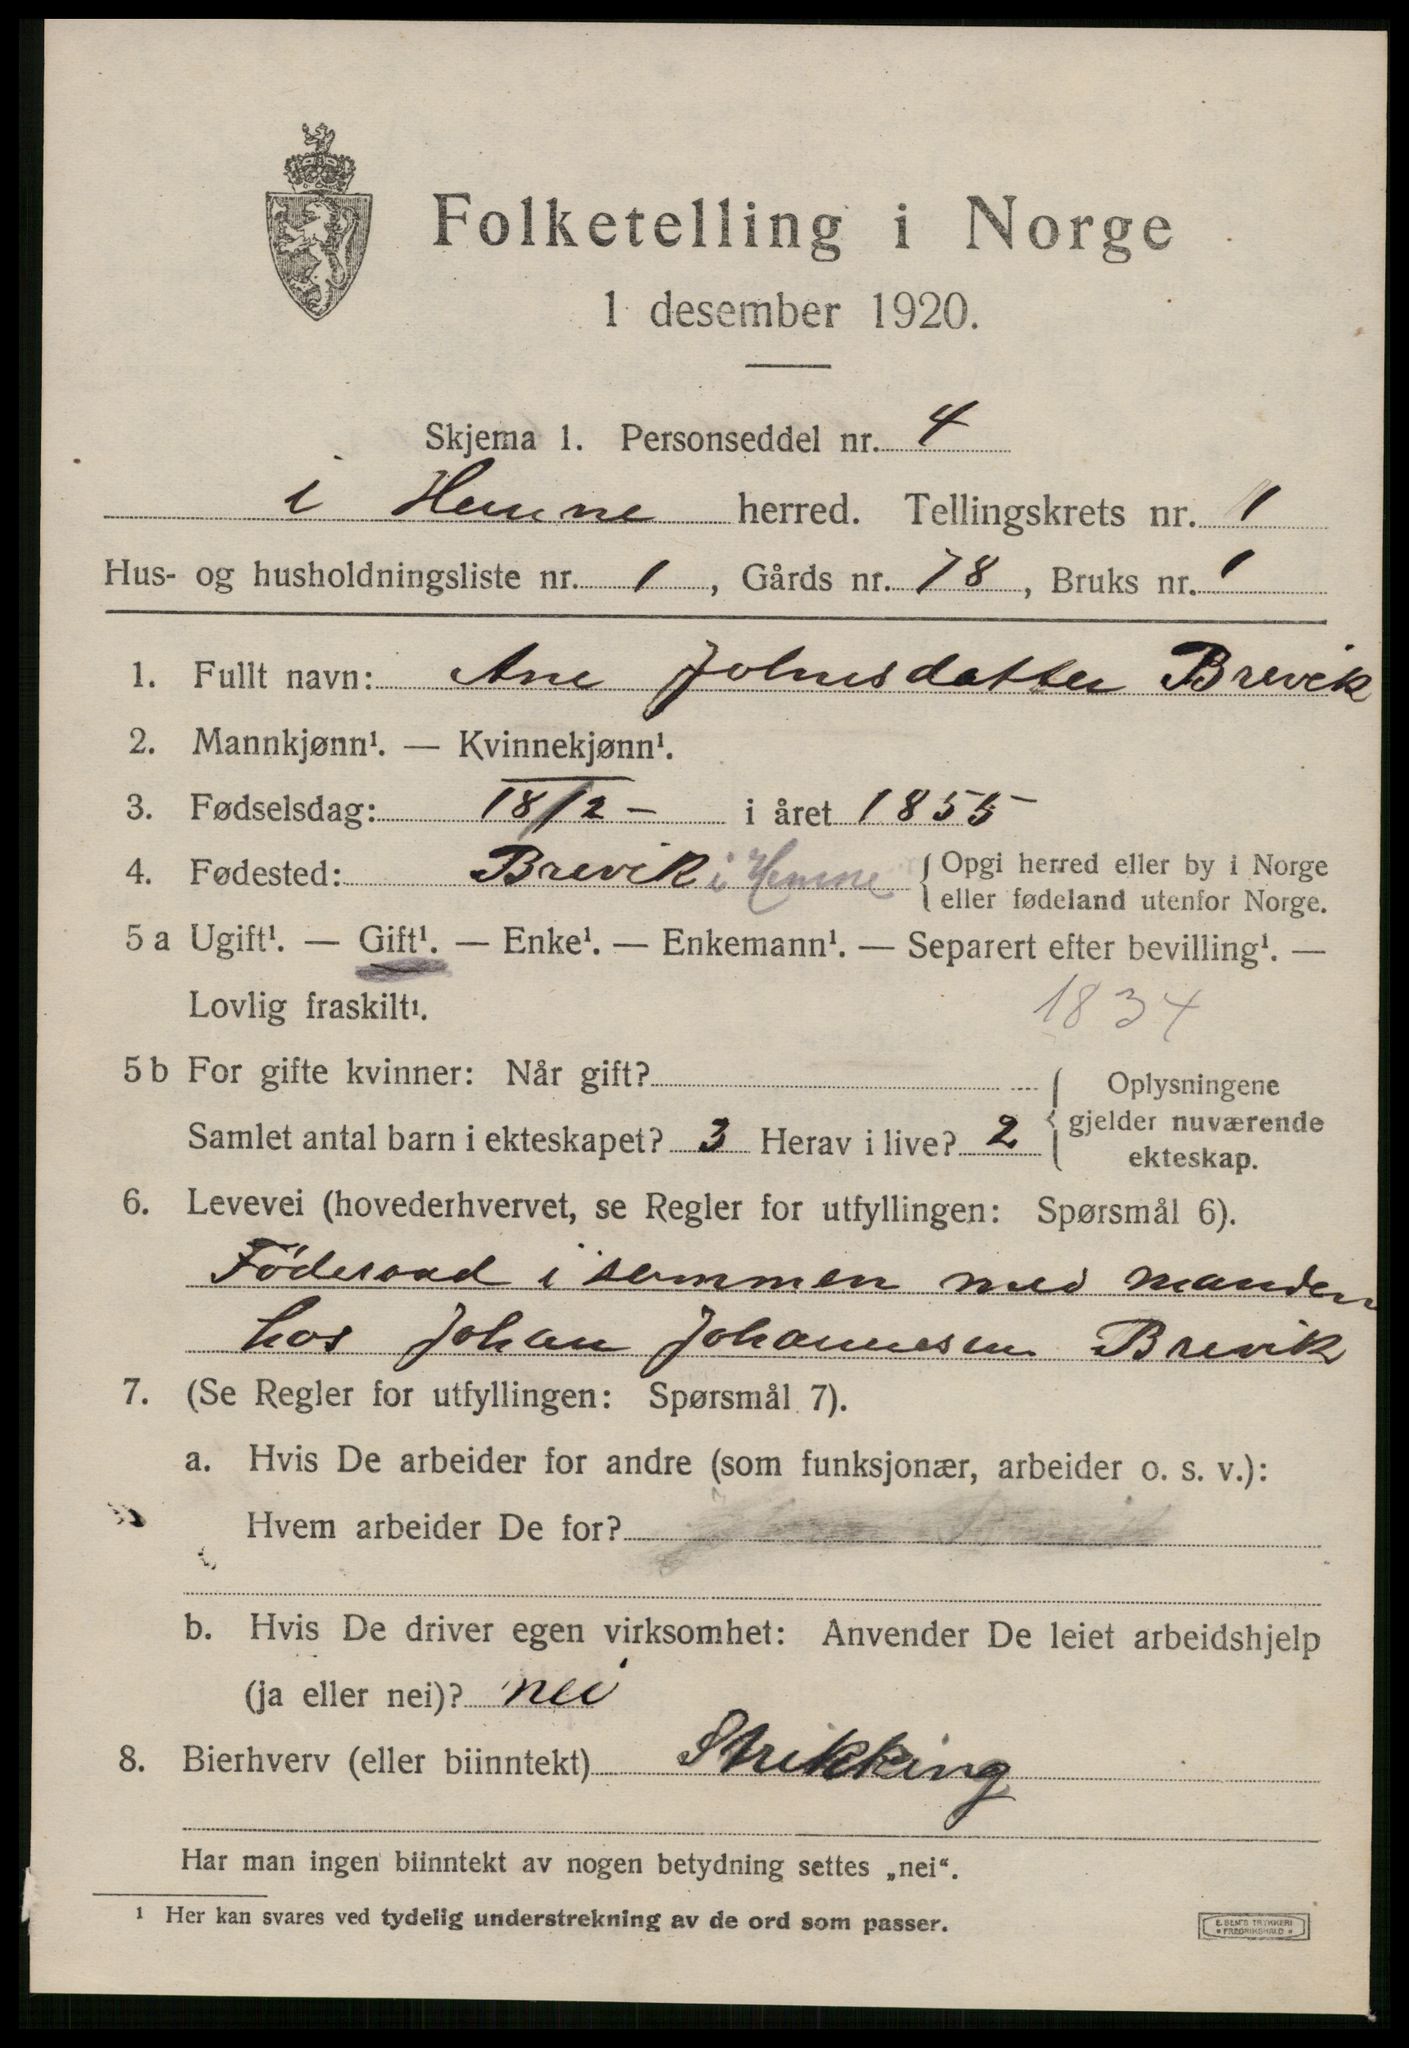 Folketelling i Norge
1 desember 1920.
Skjema 1. Personseddel nr. 4
i Hemne herred. Tellingskrets nr. 1
Hus- og husholdningsliste nr. 1, Gårds nr. 78, Bruks nr. 1
1. Fullt navn: Ane Johnsdatter Brevik
2. Mannkjønn¹. — Kvinnekjønn¹.
3. Fødselsdag: 18/2 - i året 1855
4. Fødested: Brevik i Hemne { Opgi herred eller by i Norge
eller fødeland utenfor Norge.
5 a Ugift¹. — Gift¹. — Enke¹. — Enkemann¹. — Separert efter bevilling¹. —
Lovlig fraskilt¹.
1834
5 b For gifte kvinner: Når gift?
Samlet antal barn i ekteskapet? 3 Herav i live? 2
{ Oplysningene
gjelder nuværende
ekteskap.
6. Levevei (hovederhvervet, se Regler for utfyllingen: Spørsmål 6).
Föderaad i sammen med manden
hos Johan Johannesen Brevik
7. (Se Regler for utfyllingen: Spørsmål 7).
a. Hvis De arbeider for andre (som funksjonær, arbeider o. s. v.):
Hvem arbeider De for?
b. Hvis De driver egen virksomhet: Anvender De leiet arbeidshjelp
(ja eller nei)? nei
8. Bierhverv (eller biinntekt) Strikking
Har man ingen biinntekt av nogen betydning settes „nei“.
¹ Her kan svares ved tydelig understrekning av de ord som passer.
E. SEM'S TRYKKERI
* FREDRIKSHALD *